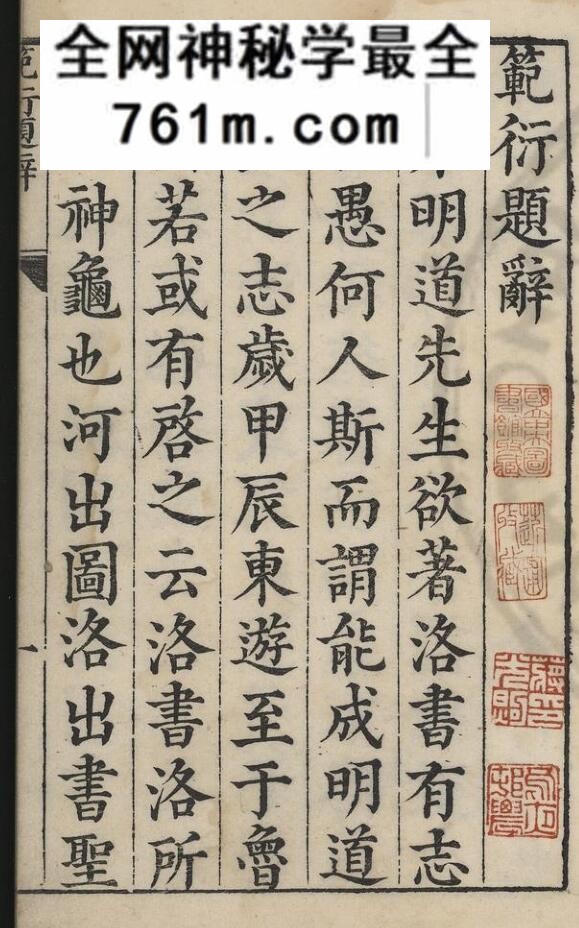 全网神秘学最全
761m.com
範衍題辭
明道先生欲著洛書有志
愚何人斯而謂能成明道
之志歲甲辰東遊至于魯
若或有啓之云洛書洛所
神龜也河出圖洛出書聖
範衍題辭
一